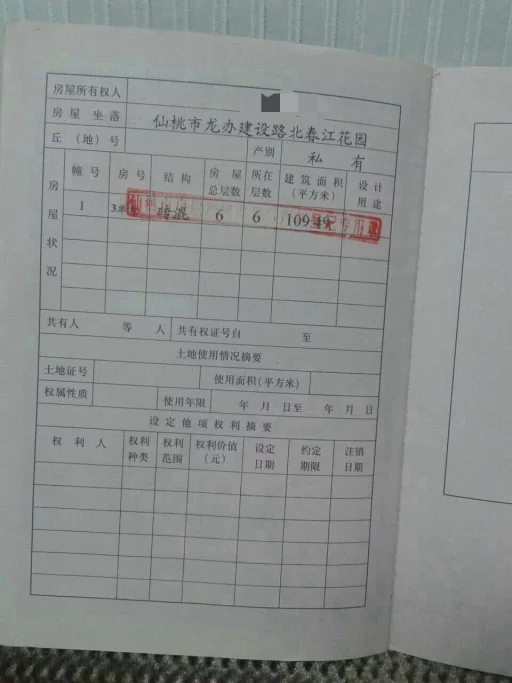 房屋所有权人
房屋坐落 仙桃市龙办建设路北春江花园
丘（地）号 产别 私有
房屋状况
幢号 房号 结构 房屋总层数 所在层数 建筑面积（平方米） 设计用途
1 3单 砖混 6 6 109
共有人 等 人 共有权证号自 至
土地使用情况摘要
土地证号 使用面积(平方米)
权属性质 使用年限 年 月 日至 年 月 日
设定他项权利摘要
权利人 权利种类 权利范围 权利价值（元） 设定日期 约定期限 注销日期